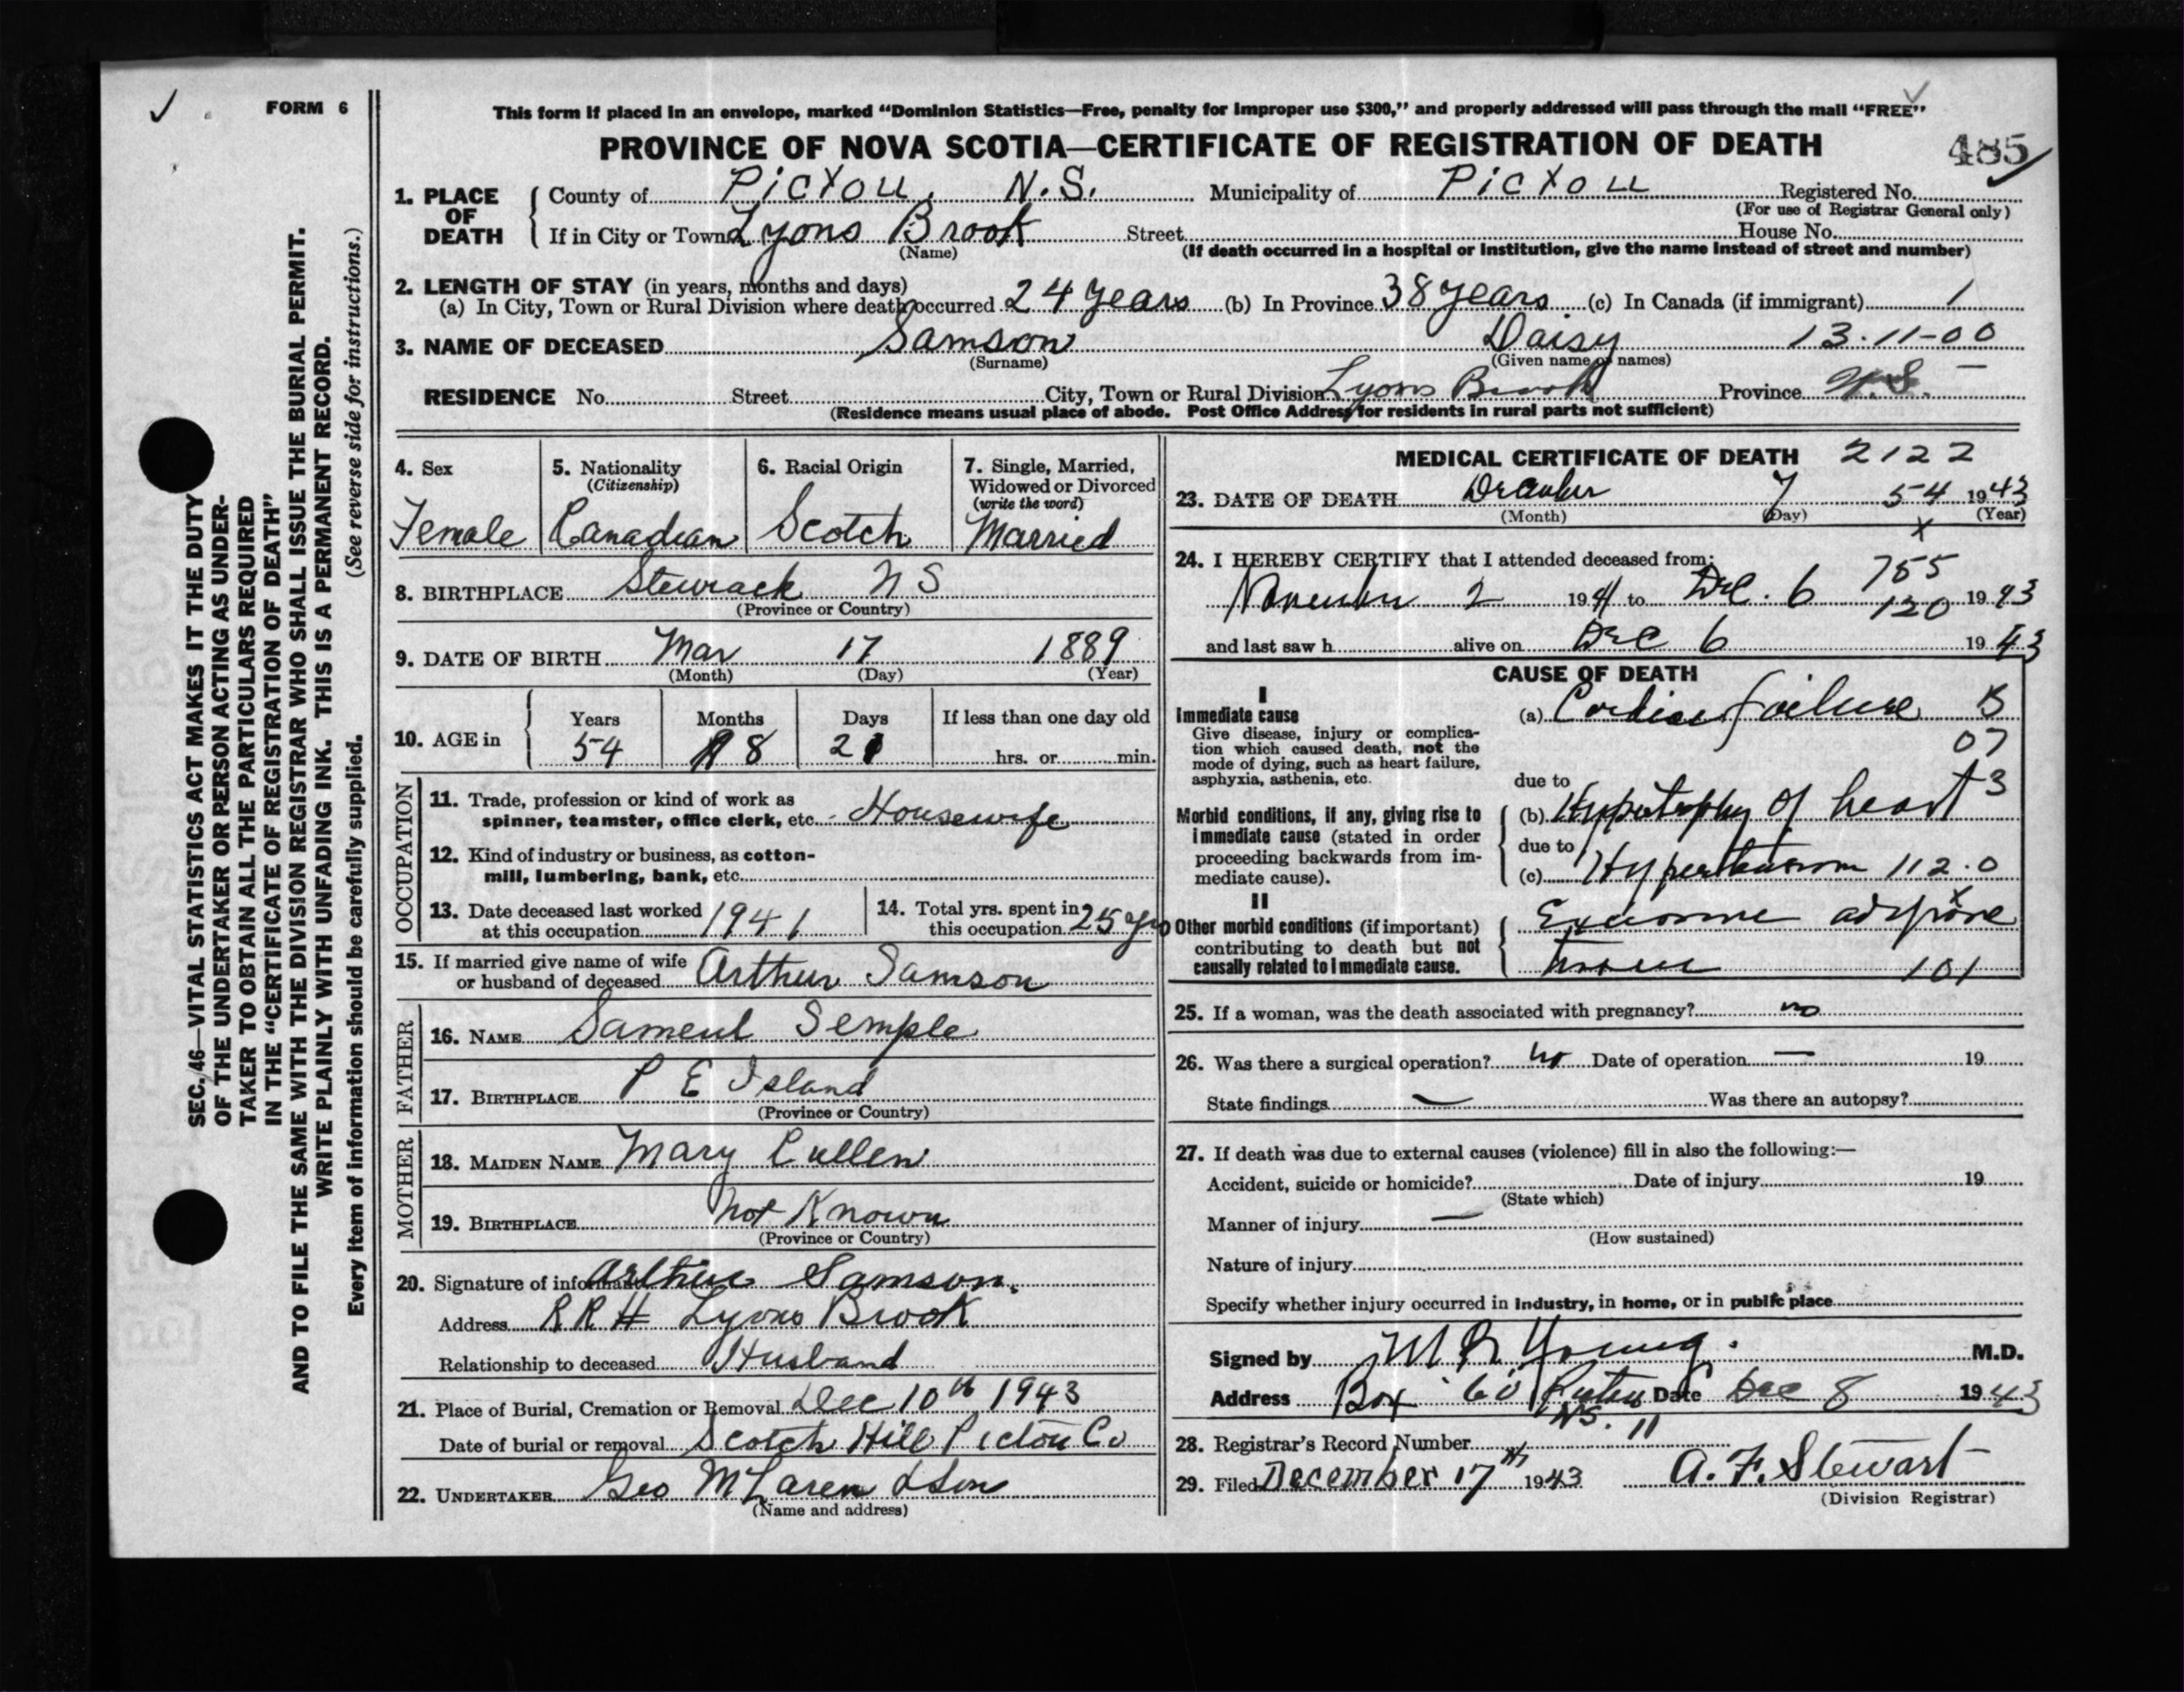 FORM 6
This form if placed in an envelope, marked “Dominion Statistics—Free, penalty for improper use $300,” and properly addressed will pass through the mail “FREE”
PROVINCE OF NOVA SCOTIA—CERTIFICATE OF REGISTRATION OF DEATH
485
1. PLACE OF DEATH
County of Pictou, N.S. Municipality of Pictou Registered No.
(For use of Registrar General only)
If in City or Town Lyons Brook Street House No.
(Name) (If death occurred in a hospital or institution, give the name instead of street and number)
2. LENGTH OF STAY (in years, months and days)
(a) In City, Town or Rural Division where death occurred 24 years (b) In Province 38 years (c) In Canada (if immigrant) /
3. NAME OF DECEASED Samson Daisy 13.11-00
(Surname) (Given name or names)
RESIDENCE No. Street City, Town or Rural Division Lyons Brook Province N.S.
(Residence means usual place of abode. Post Office Address for residents in rural parts not sufficient)
4. Sex
Female
5. Nationality
(Citizenship)
Canadian
6. Racial Origin
Scotch
7. Single, Married,
Widowed or Divorced
(write the word)
Married
8. BIRTHPLACE N S
(Province or Country)
9. DATE OF BIRTH Mar 17 1889
(Month) (Day) (Year)
10. AGE in
Years Months Days If less than one day old
54 8 21 hrs. or min.
OCCUPATION
11. Trade, profession or kind of work as
spinner, teamster, office clerk, etc. Housewife
12. Kind of industry or business, as cotton-
mill, lumbering, bank, etc.
13. Date deceased last worked
at this occupation 1941
14. Total yrs. spent in
this occupation 25 yrs
15. If married give name of wife
or husband of deceased Arthur Samson
FATHER
16. NAME Sameul Semple
17. BIRTHPLACE P E Island
(Province or Country)
MOTHER
18. MAIDEN NAME Mary Cullen
19. BIRTHPLACE Not Known
(Province or Country)
20. Signature of informant Arthur Samson.
Address R R # Lyons Brook
Relationship to deceased Husband
21. Place of Burial, Cremation or Removal Dec 10th 1943
Date of burial or removal Scotch Hill Pictou Co
22. UNDERTAKER Geo McLaren & Son
(Name and address)
MEDICAL CERTIFICATE OF DEATH 2122
23. DATE OF DEATH December 7 54 1943
(Month) (Day) (Year)
x
24. I HEREBY CERTIFY that I attended deceased from:
755
November 2 194 to Dec. 6 120 1943
and last saw h alive on Dec 6 1943
CAUSE OF DEATH
I
Immediate cause
Give disease, injury or complica-
tion which caused death, not the
mode of dying, such as heart failure,
asphyxia, asthenia, etc.
(a) Cardiac failure B
07
due to 3
Morbid conditions, if any, giving rise to
immediate cause (stated in order
proceeding backwards from im-
mediate cause).
(b) Hypertrophy of heart
due to
(c) Hypertension 112.0
x
II
Other morbid conditions (if important)
contributing to death but not
causally related to immediate cause.
adipose
101
25. If a woman, was the death associated with pregnancy? no
26. Was there a surgical operation? no Date of operation — 19
State findings — Was there an autopsy?
27. If death was due to external causes (violence) fill in also the following:—
Accident, suicide or homicide? Date of injury 19
(State which)
Manner of injury —
(How sustained)
Nature of injury
Specify whether injury occurred in industry, in home, or in public place
Signed by M R Young. M.D.
Address Box 60 Pictou Date Dec 8 1943
N.S.
28. Registrar's Record Number 11
29. Filed December 17th 1943 A. F. Stewart
(Division Registrar)
SEC. 46—VITAL STATISTICS ACT MAKES IT THE DUTY
OF THE UNDERTAKER OR PERSON ACTING AS UNDER-
TAKER TO OBTAIN ALL THE PARTICULARS REQUIRED
IN THE “CERTIFICATE OF REGISTRATION OF DEATH”
AND TO FILE THE SAME WITH THE DIVISION REGISTRAR WHO SHALL ISSUE THE BURIAL PERMIT.
WRITE PLAINLY WITH UNFADING INK. THIS IS A PERMANENT RECORD.
Every item of information should be carefully supplied. (See reverse side for instructions.)